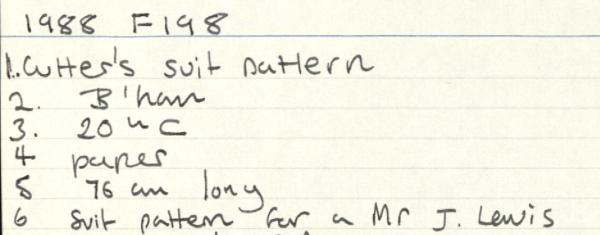 1988 F198
1. Cutter's suit pattern
2. B'ham
3. 20th C
4 paper
5 76 cm long
6 Suit pattern for a Mr J. Lewis